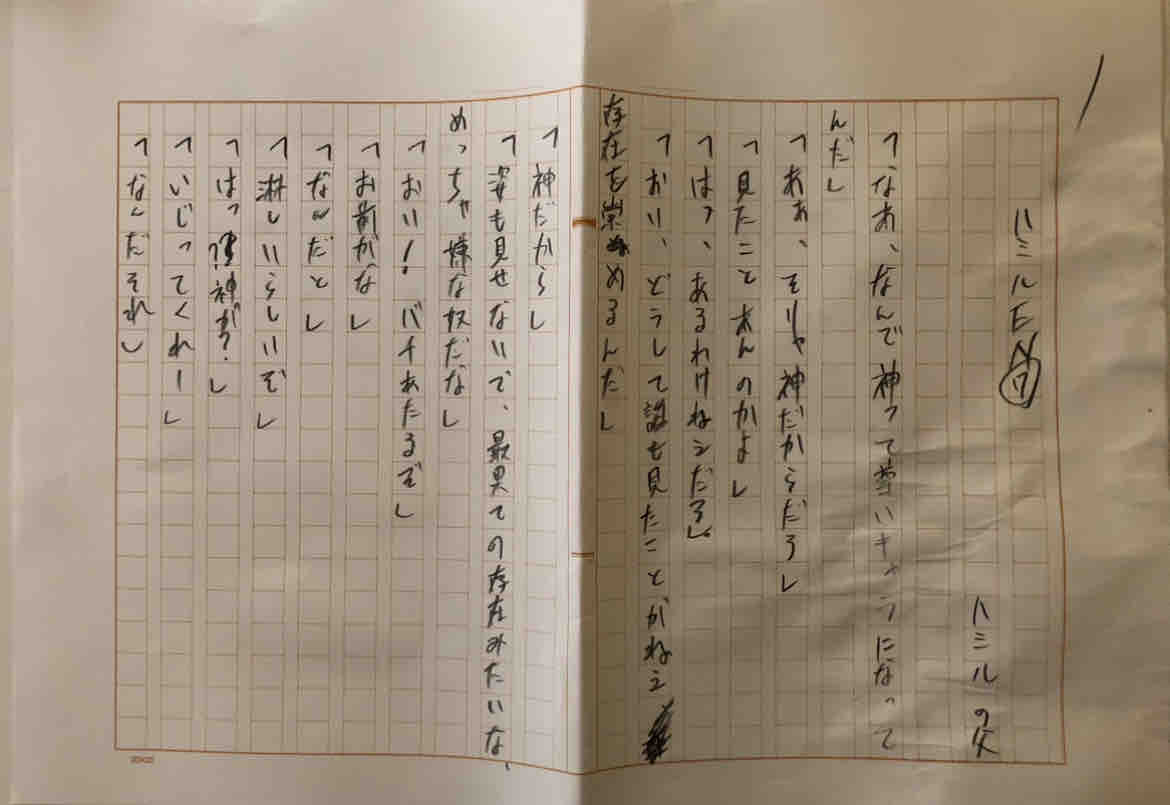 ハミルE⑦
ハミルの父
「なあ、なんで神って尊いキャラになって
んだ」
「ああ、そりゃ神だからだろ」
「見たことあんのかよ」
「はっ、あるわけねえだろ」
「おい、どうして誰も見たことがねえ
存在を崇めるんだ」
「神だから」
「姿も見せないで、最果ての存在みたいな、
めっちゃ嫌な奴だな」
「おい！バチあたるぞ」
「お前がな」
「なんだと」
「淋しいらしいぞ」
「はっ？神が？」
「いじってくれー」
「なんだそれ」